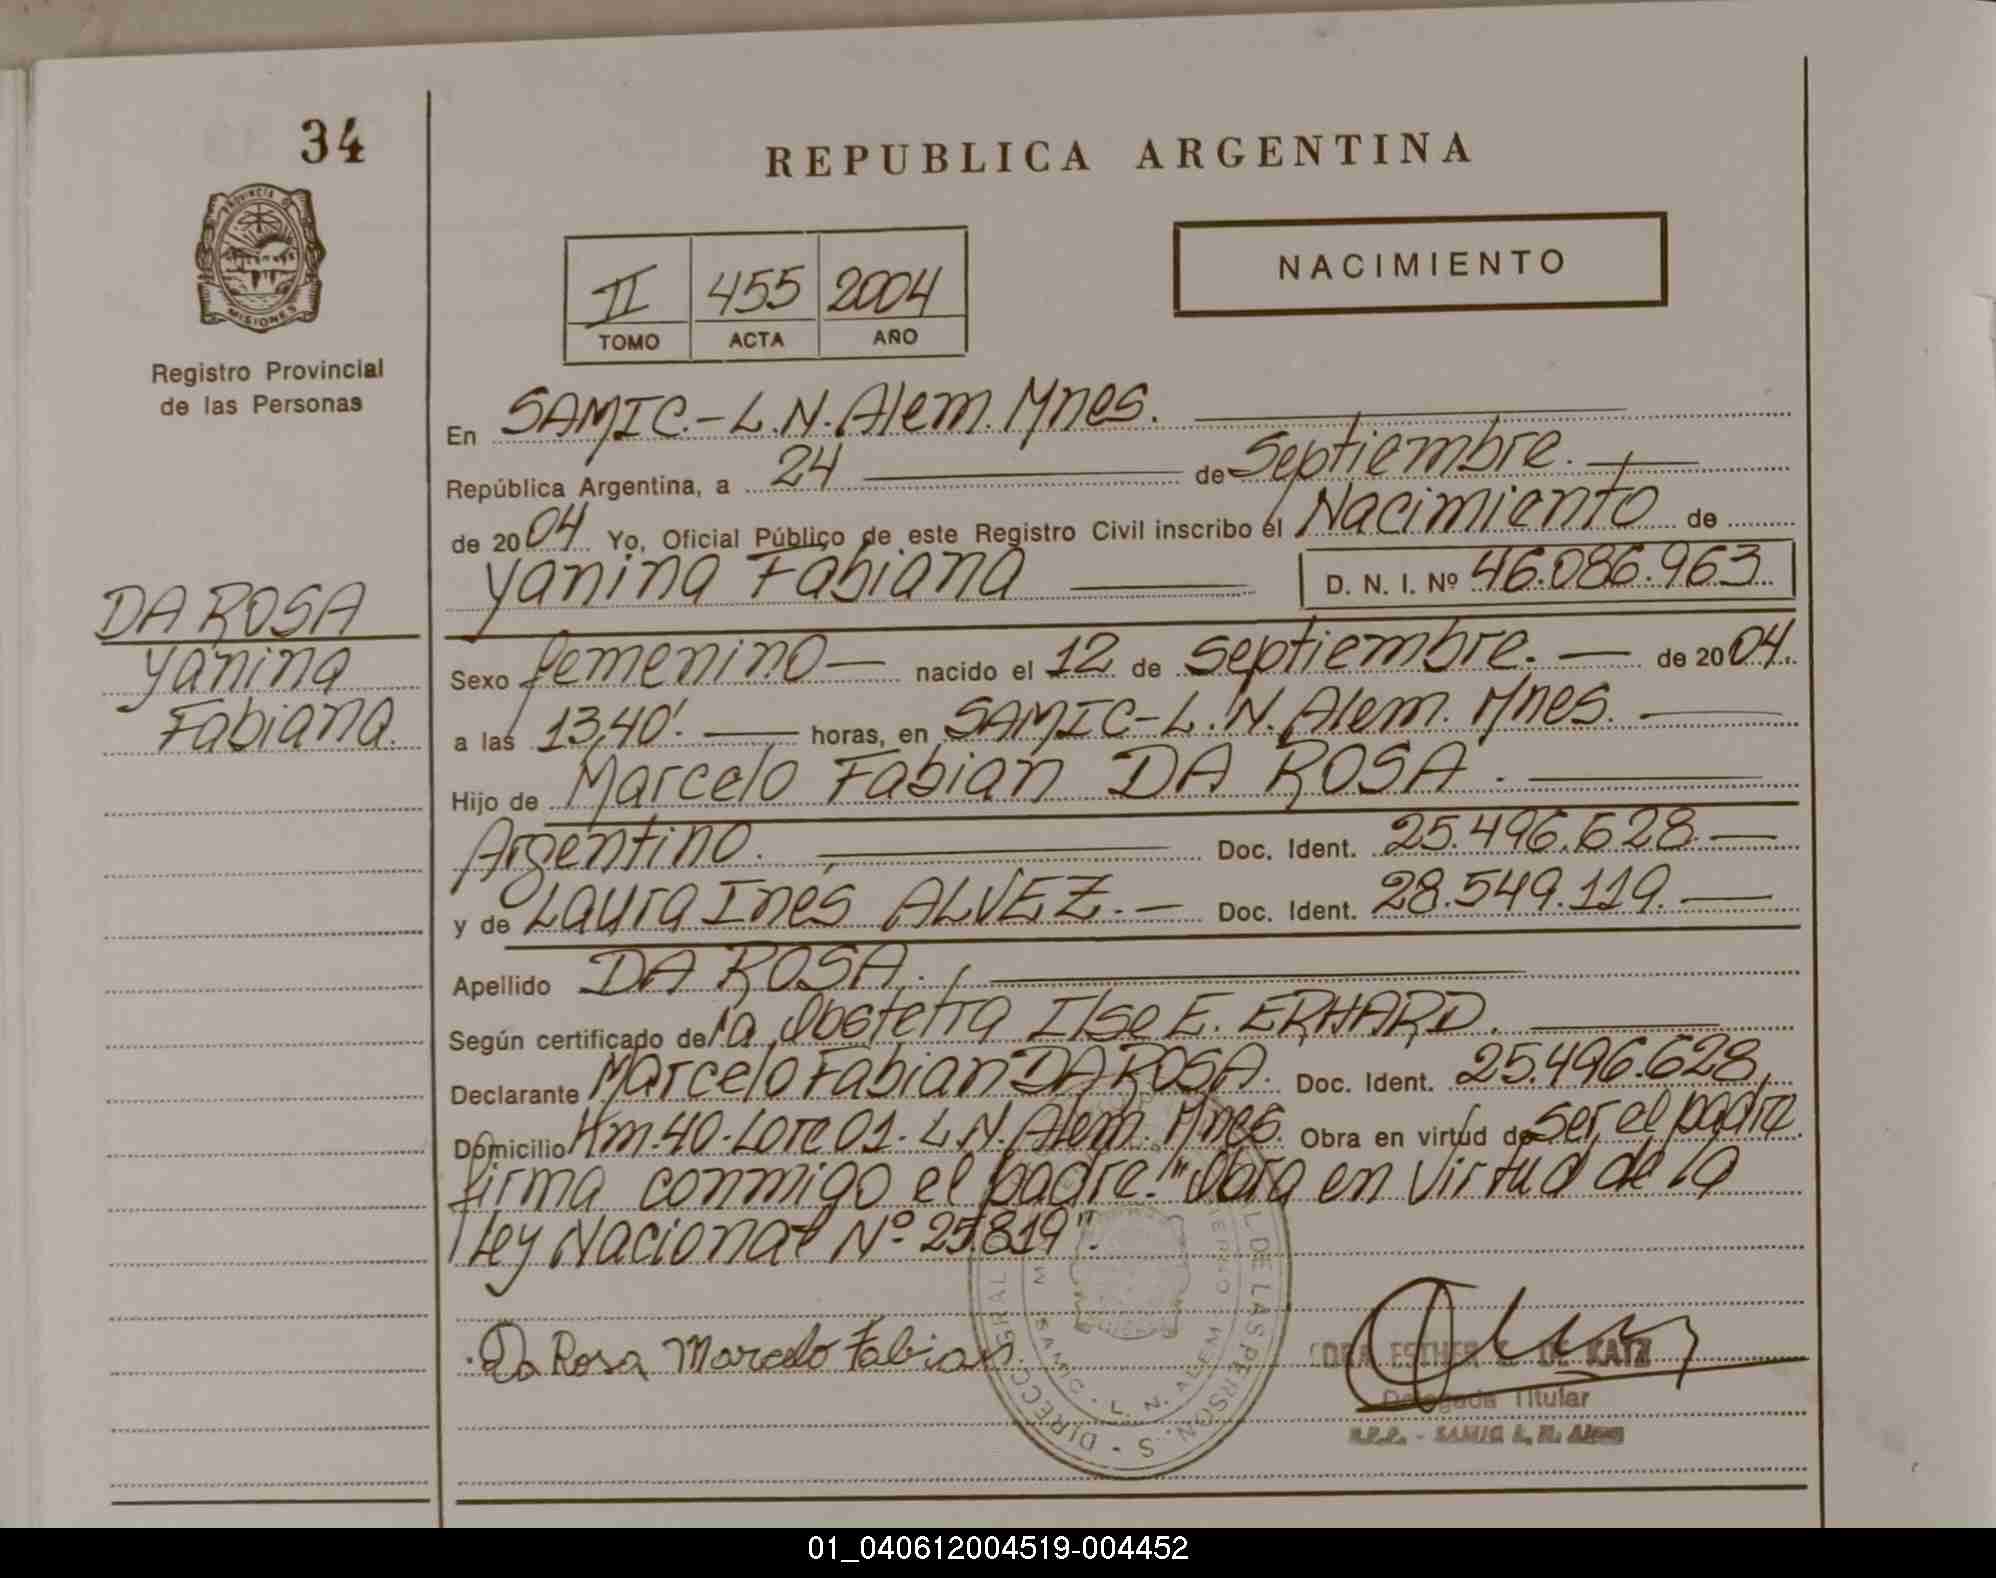 34
REPUBLICA ARGENTINA
PROVINCIA DE
MISIONES
Registro Provincial
de las Personas
II 455 2004
TOMO ACTA AÑO
NACIMIENTO
En SAMIC.-L.N.Alem.Mnes.
República Argentina, a 24 de Septiembre.
de 2004 Yo, Oficial Público de este Registro Civil inscribo el Nacimiento de
Yanina Fabiana D. N. I. Nº 46.086.963
DA ROSA
Yanina
Fabiana.
Sexo femenino nacido el 12 de Septiembre. de 2004.
a las 13,40'. horas, en SAMIC-L.N.Alem. Mnes.
Hijo de Marcelo Fabian DA ROSA.
Argentino. Doc. Ident. 25.496.628
y de Laura Inés ALVEZ.- Doc. Ident. 28.549.119.
Apellido DA ROSA.
Según certificado de la Obstetra Ilse E. ERHARD.
Declarante Marcelo Fabian DA ROSA. Doc. Ident. 25.496.628,
Domicilio Hm.40.Lote 01. L.N.Alem. Mnes. Obra en virtud de ser, el padre
firma conmigo el padre."Obra en virtud de la
Ley Nacional Nº 25.819".
Da Rosa Marcelo Fabian.
ESTHER DE KATZ
Delegada Titular
R.P.P. - SAMIC L. N. Alem
SAMIC - L. N. ALEM
01_040612004519-004452